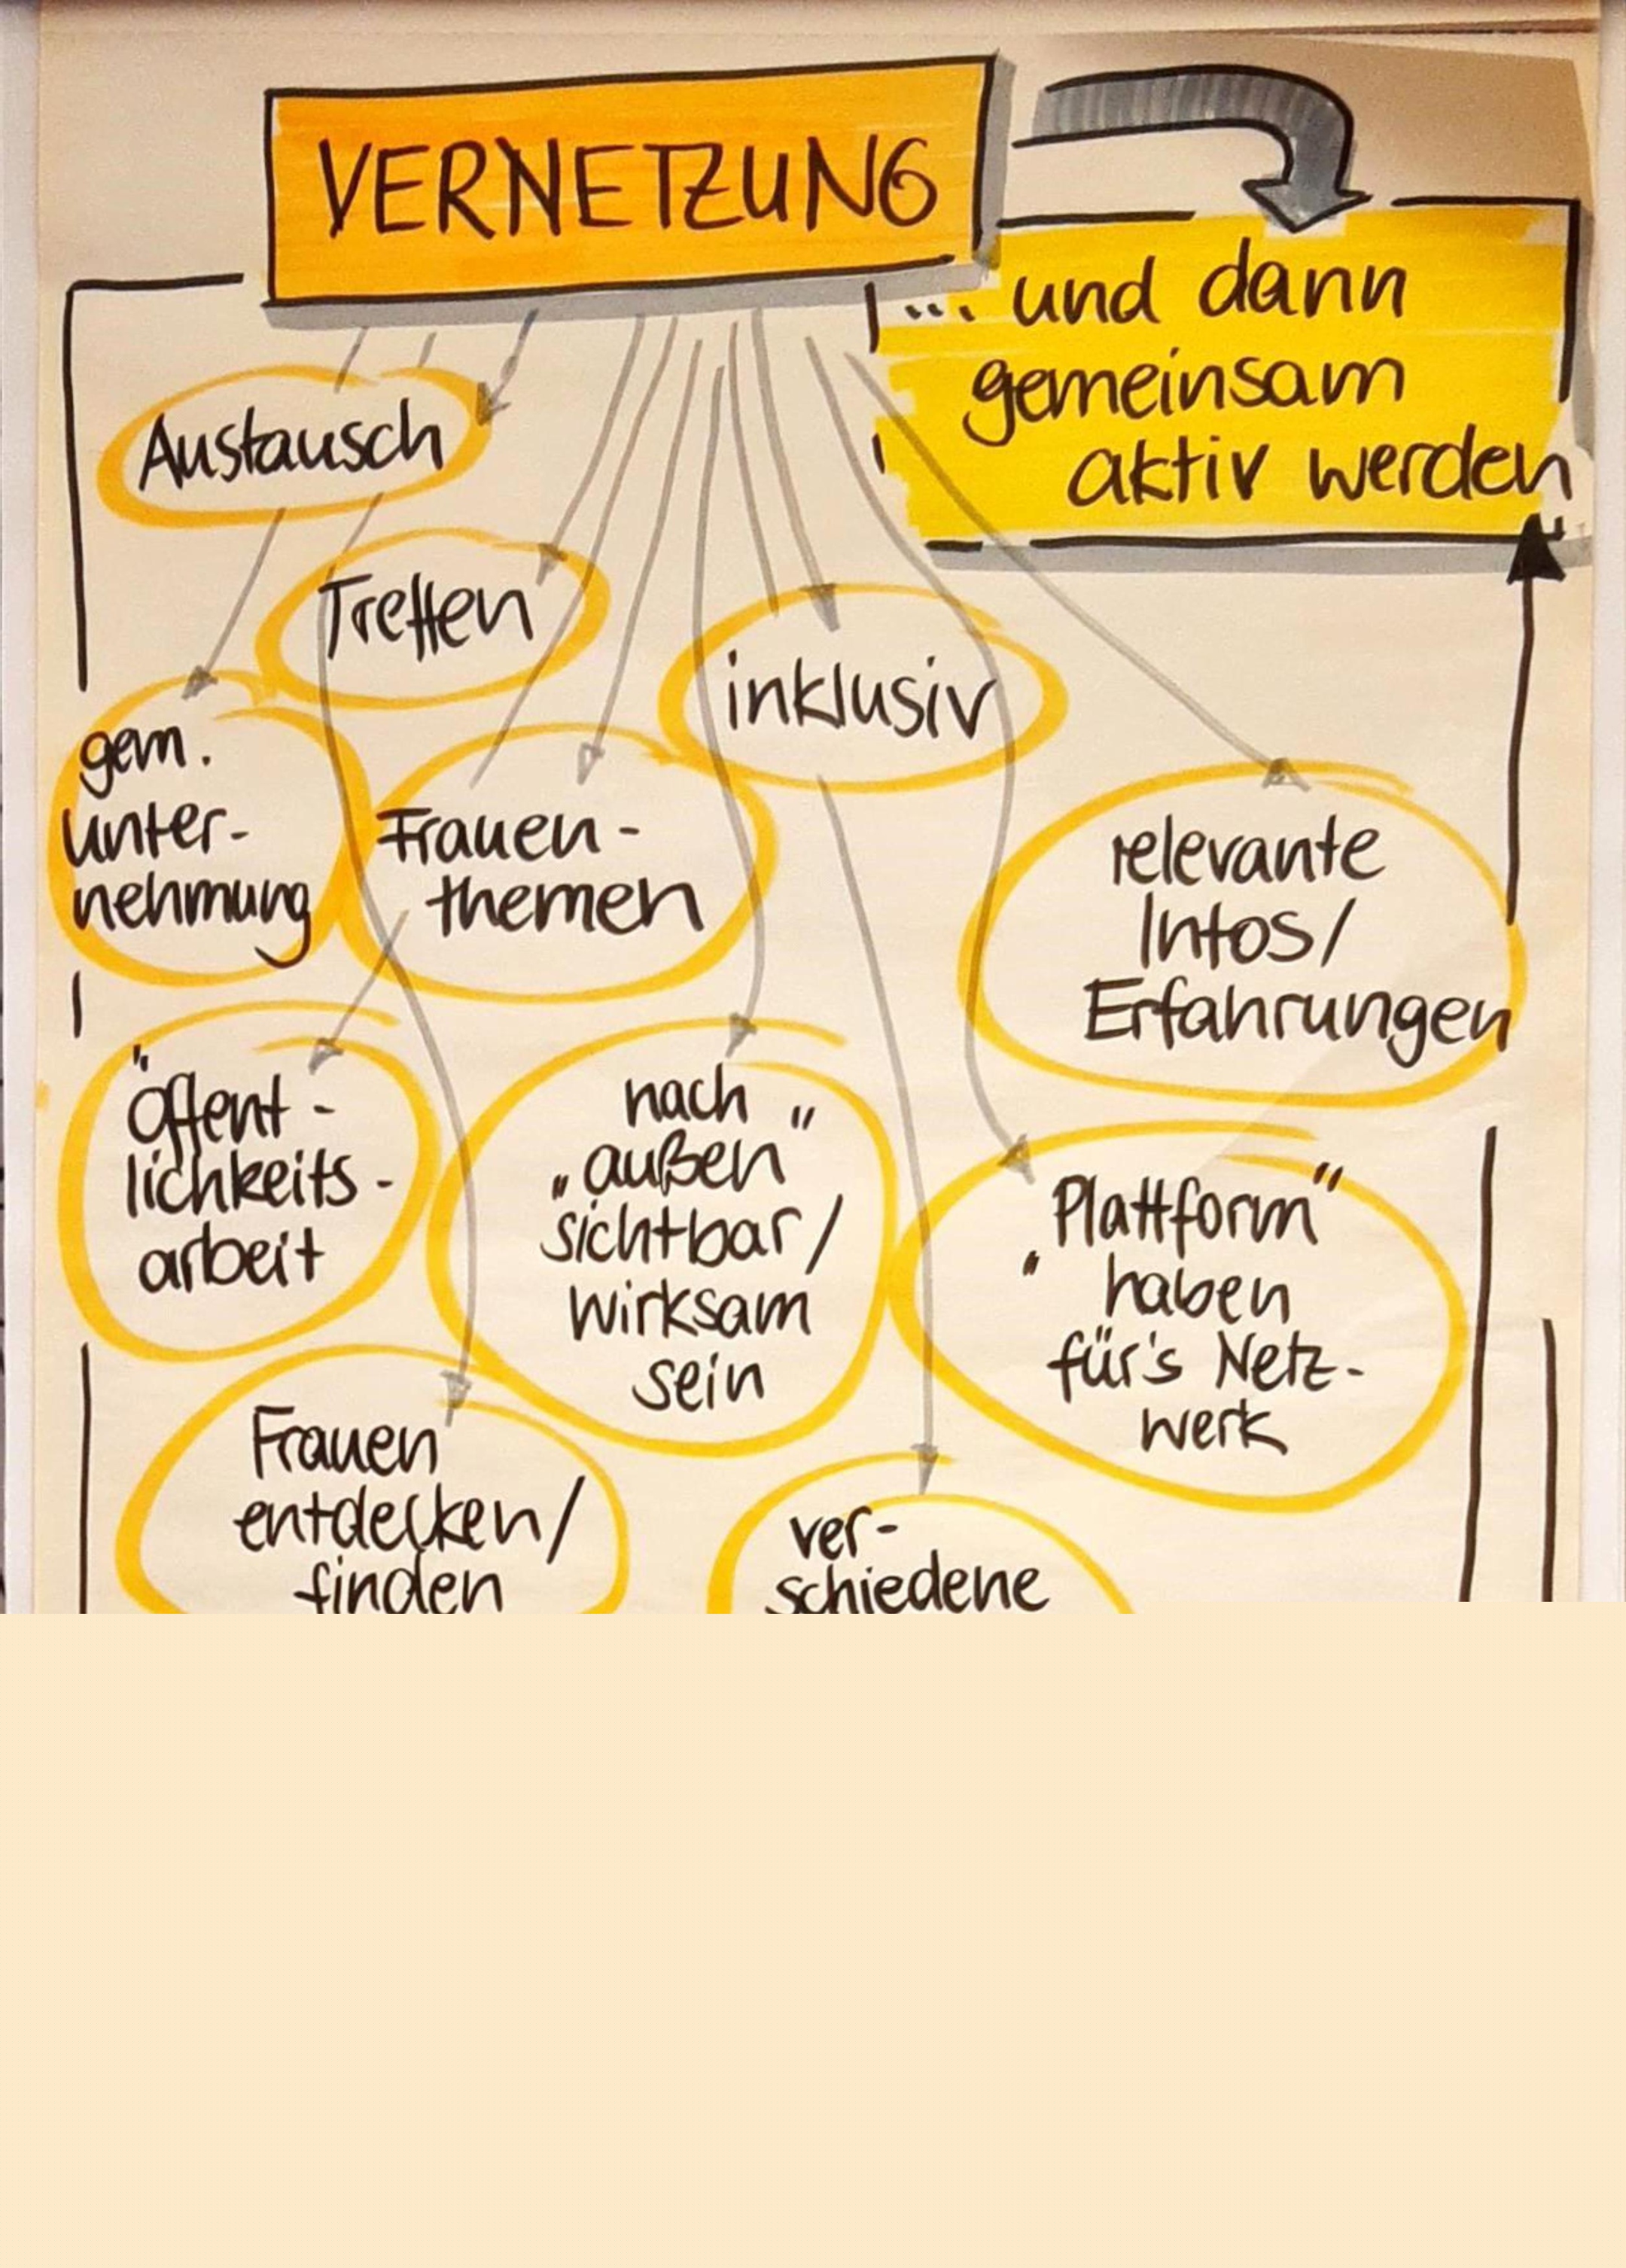 VERNETZUNG
... und dann
gemeinsam
aktiv werden
Austausch
Treffen
inklusiv
gem.
Unter-
nehmung
Frauen-
themen
relevante
Infos/
Erfahrungen
Öffent-
lichkeits-
arbeit
nach
„außen“
sichtbar/
wirksam
sein
„Plattform“
haben
für's Netz-
werk
Frauen
entdecken/
finden
ver-
schiedene